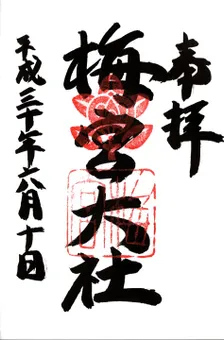 奉拝
梅宮大社
平成三十年六月十日